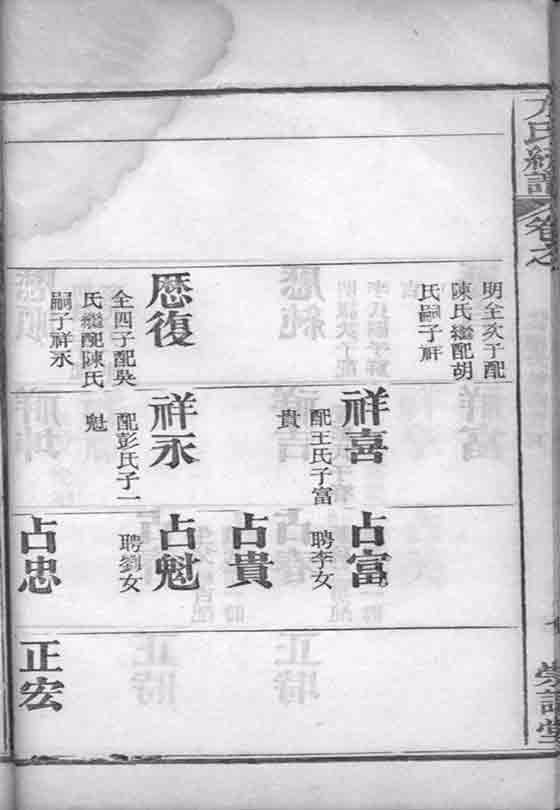 方氏統譜 卷之
明全次子配
陳氏繼配胡
氏嗣子祥
歷復
全四子配吳
氏繼配陳氏
嗣子祥永
祥喜
配王氏子富
貴
祥永
配彭氏子一
魁
占富
聘李女
占貴
占魁
聘劉女
占忠
正宏